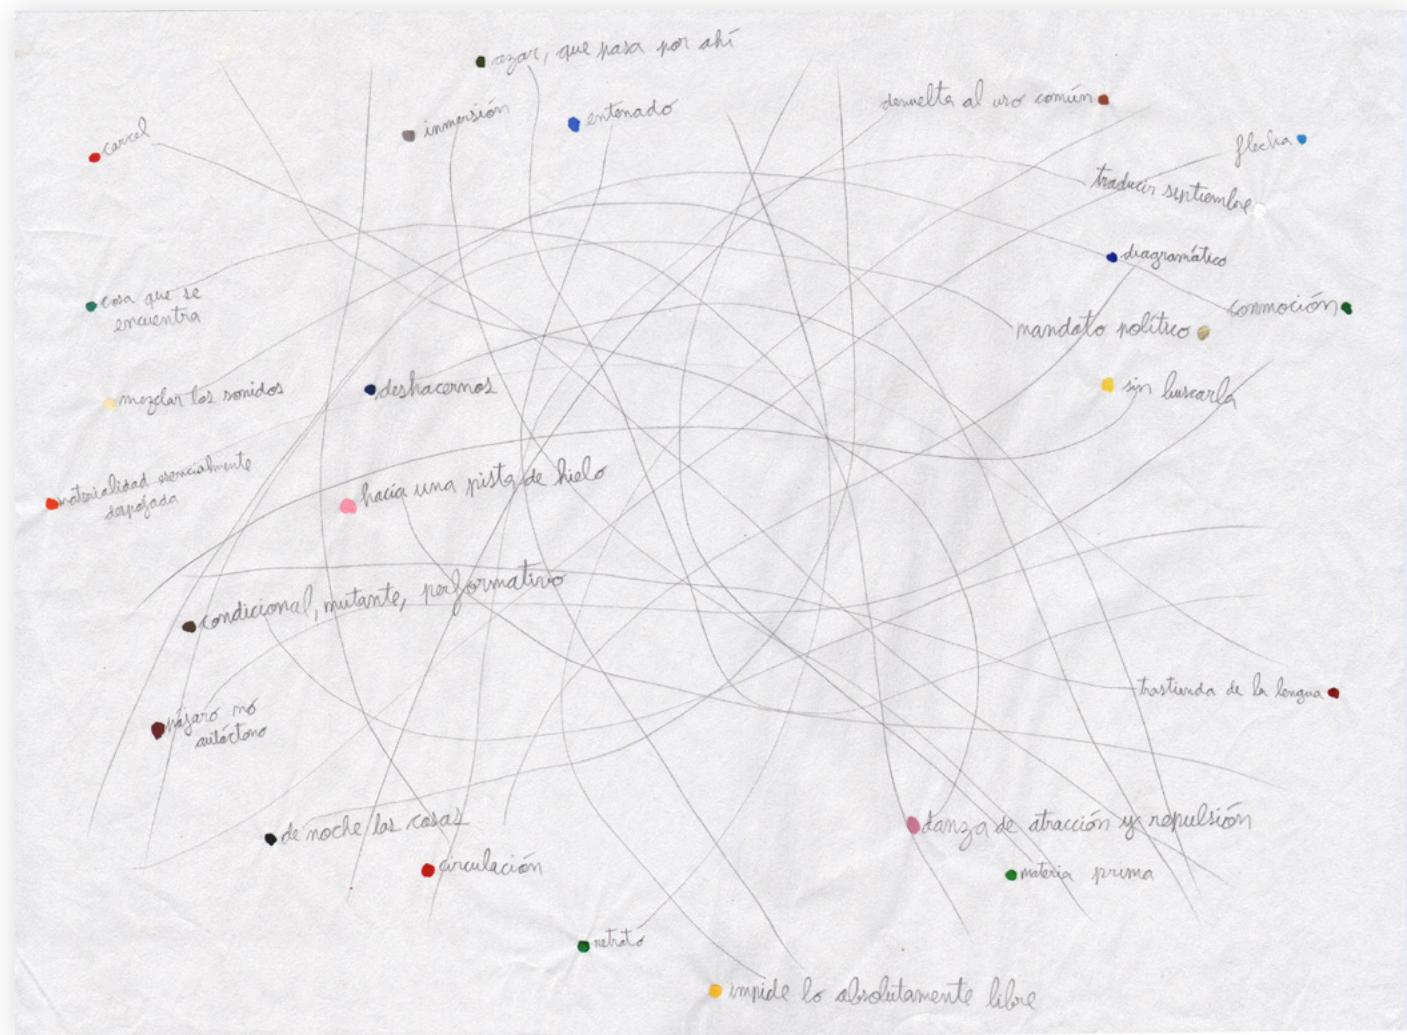 azar, que pasa por ahí
inmersión
entenado
devuelta al uso común
carcel
flecha
traducir septiembre
diagramático
cosa que se
encuentra
conmoción
mandato político
mezclar los sonidos
deshacernos
sin buscarla
materialidad esencialmente
despojada
hacia una pista de hielo
condicional, mutante, performativo
trastienda de la lengua
pájaro no
autóctono
de noche las cosas
danza de atracción y repulsión
circulación
materia prima
retrato
impide lo absolutamente libre